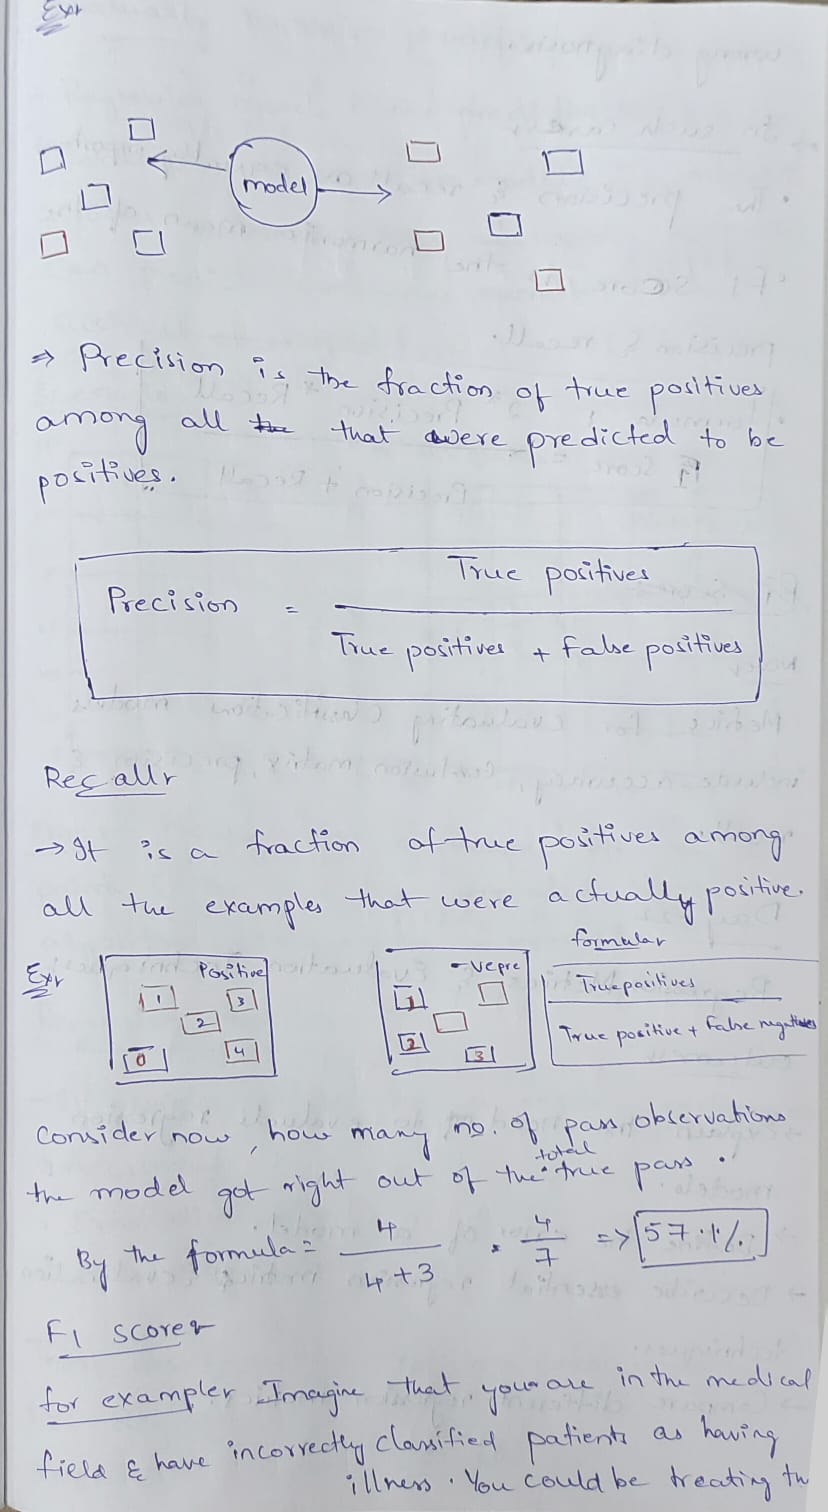 Ex:
model
⇒ Precision is the fraction of true positives
among all that were predicted to be
positives.
Precision = True positives
True positives + false positives
Recall:
→ It is a fraction of true positives among
all the examples that were actually positive.
formula:
Ex:
Positive
1
3
2
0
4
-ve pre
1
2
3
True positives
True positive + false negatives
Consider now, how many no. of pass observations
the model got right out of the total true pass.
By the formula = 4 / 4+3 = 4/7 => 57.1%.
F1 score:
for example: Imagine that you are in the medical
field & have incorrectly classified patients as having
illness. You could be treating